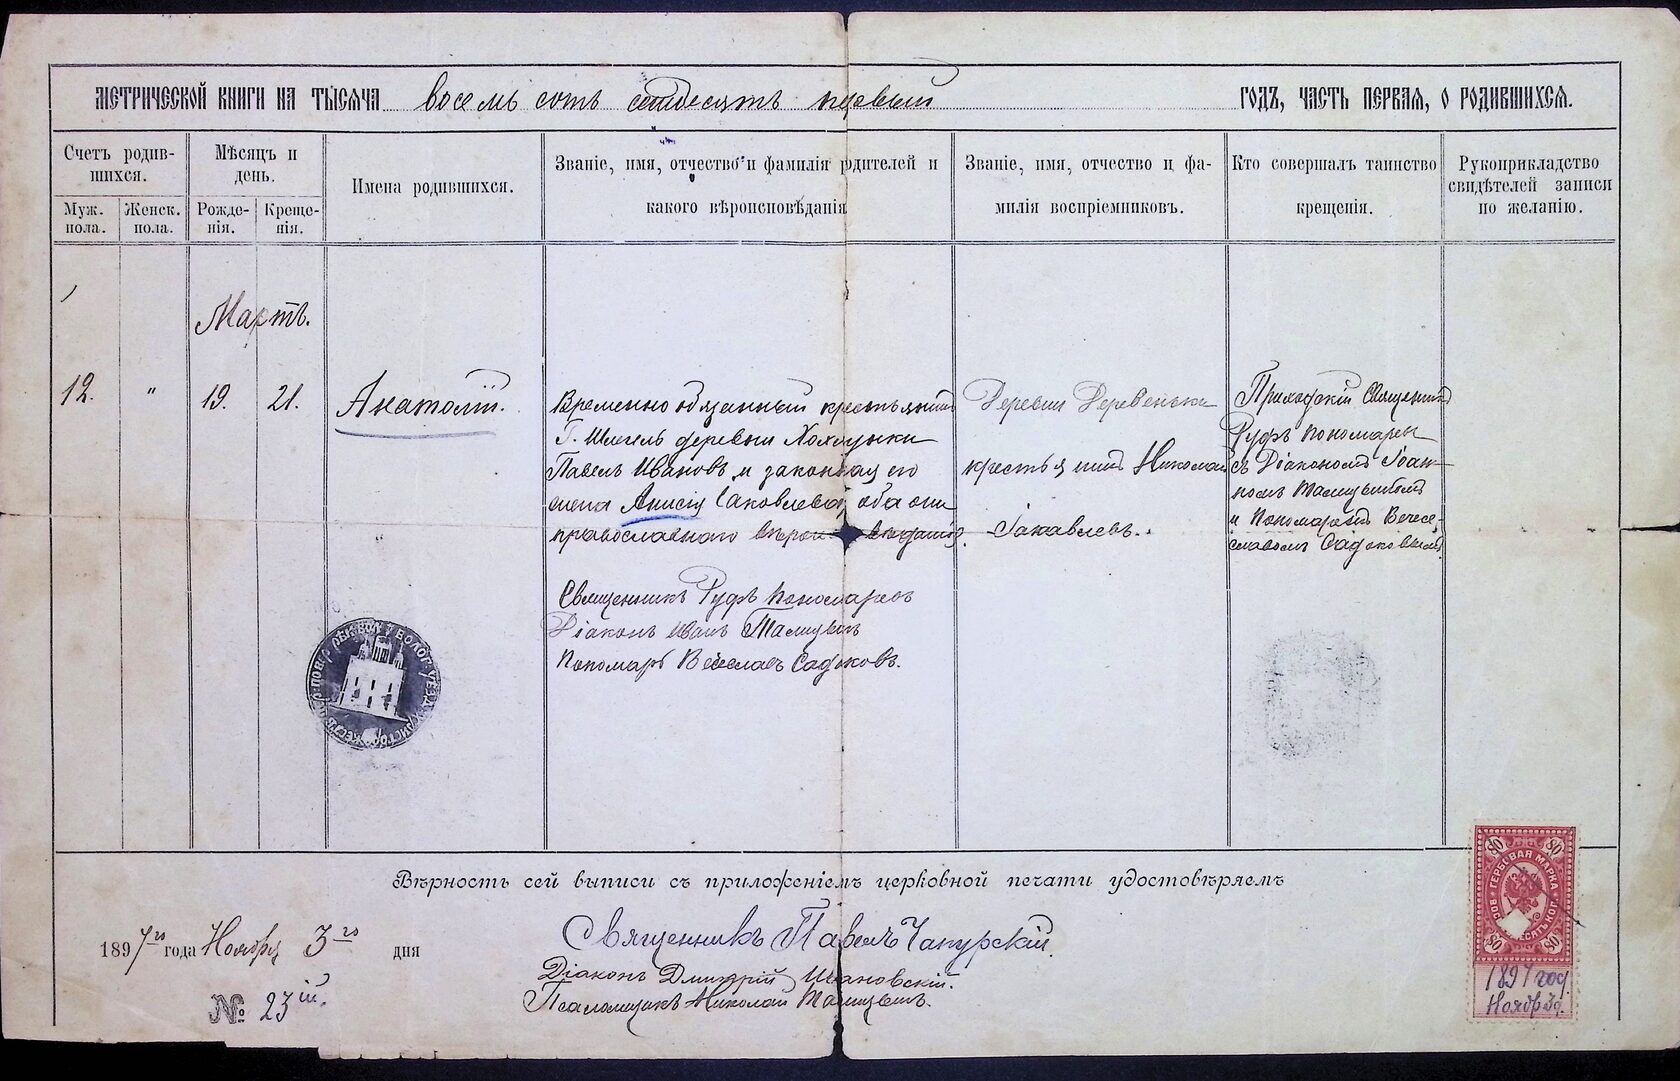 МЕТРИЧЕСКОЙ КНИГИ НА ТЫСЯЧА восемь сотъ семдесятъ первый ГОДЪ, ЧАСТЬ ПЕРВАЯ, О РОДИВШИХСЯ.
Счетъ родив-
шихся.
Муж.
пола.
Женск.
пола.
Мѣсяцъ и
день.
Рожде-
нія.
Креще-
нія.
Имена родившихся.
Званіе, имя, отчество и фамилія родителей и
какого вѣроисповѣданія
Званіе, имя, отчество и фа-
милія воспріемниковъ.
Кто совершалъ таинство
крещенія.
Рукоприкладство
свидѣтелей записи
по желанію.
Мартъ.
12.
"
19.
21.
Анатолій.
Временно обязанный крестьянинъ
Г. деревни
Павелъ Ивановъ и законная его
жена Анисія Іаковлева, оба они
православнаго вѣроисповѣданія.
Священникъ Руфъ Пономаревъ
Діаконъ Иванъ
Пономарь Вечеславъ Садоковъ.
Деревни Деревеньки
крестьянинъ Николай
Іаковлевъ.
Приходскій Священникъ
Руфъ Пономаревъ
съ Діакономъ Іоан-
номъ
и Пономаремъ Вечес-
лавомъ Садоковымъ
Вѣрность сей выписи съ приложеніемъ церковной печати удостовѣряемъ
1897го года Ноября 3го дня
№ 23ій.
Священникъ Павелъ Чапурскій.
Діаконъ Дмитрій
Псаломщикъ Николай
80 80
ГЕРБОВАЯ МАРКА
80 80
1897 год.
Ноября